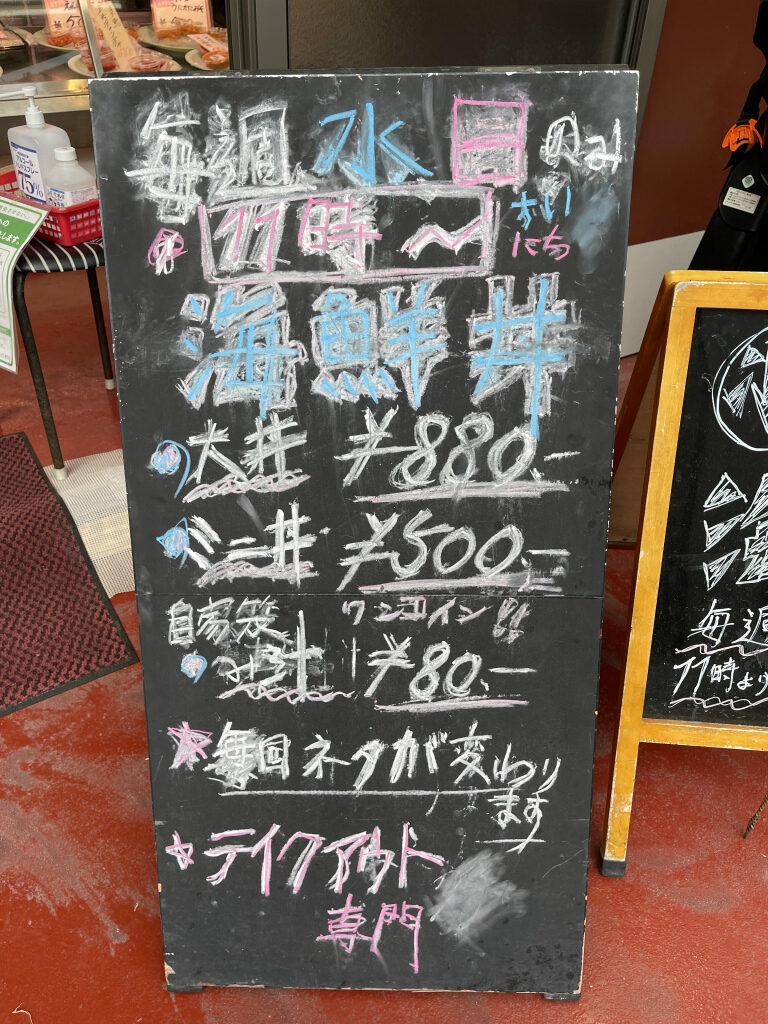 毎週水日のみ
11時〜
すい
にち
海鮮丼
大丼 ¥880.-
ミニ丼 ¥500.-
ワンコイン!!
自家製
みそ汁 ¥80.-
☆毎回ネタが変わり
ます
☆テイクアウト
専門
毎週
11時より
アルコール
75%